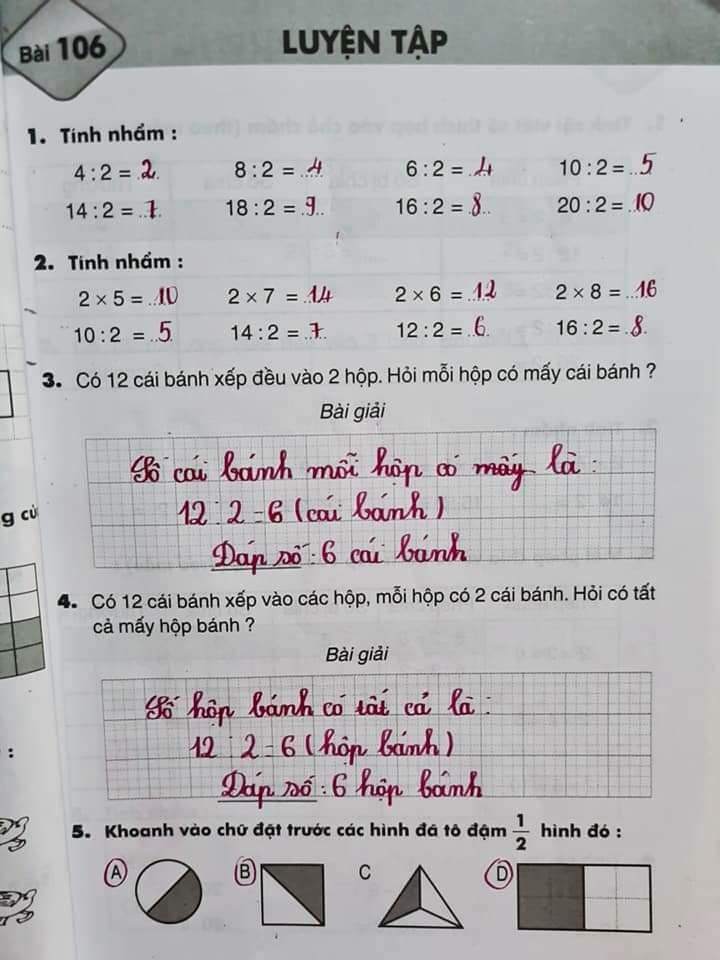 Bài 106
LUYỆN TẬP
1. Tính nhẩm :
4 : 2 = 2 8 : 2 = 4 6 : 2 = 4 10 : 2 = 5
14 : 2 = 7 18 : 2 = 9 16 : 2 = 8 20 : 2 = 10
2. Tính nhẩm :
2 × 5 = 10 2 × 7 = 14 2 × 6 = 12 2 × 8 = 16
10 : 2 = 5 14 : 2 = 7 12 : 2 = 6 16 : 2 = 8
3. Có 12 cái bánh xếp đều vào 2 hộp. Hỏi mỗi hộp có mấy cái bánh ?
Bài giải
Số cái bánh mỗi hộp có mấy là :
12 : 2 = 6 (cái bánh)
Đáp số : 6 cái bánh
4. Có 12 cái bánh xếp vào các hộp, mỗi hộp có 2 cái bánh. Hỏi có tất
cả mấy hộp bánh ?
Bài giải
Số hộp bánh có tất cả là :
12 : 2 = 6 (hộp bánh)
Đáp số : 6 hộp bánh
5. Khoanh vào chữ đặt trước các hình đã tô đậm 1/2 hình đó :
A B C D